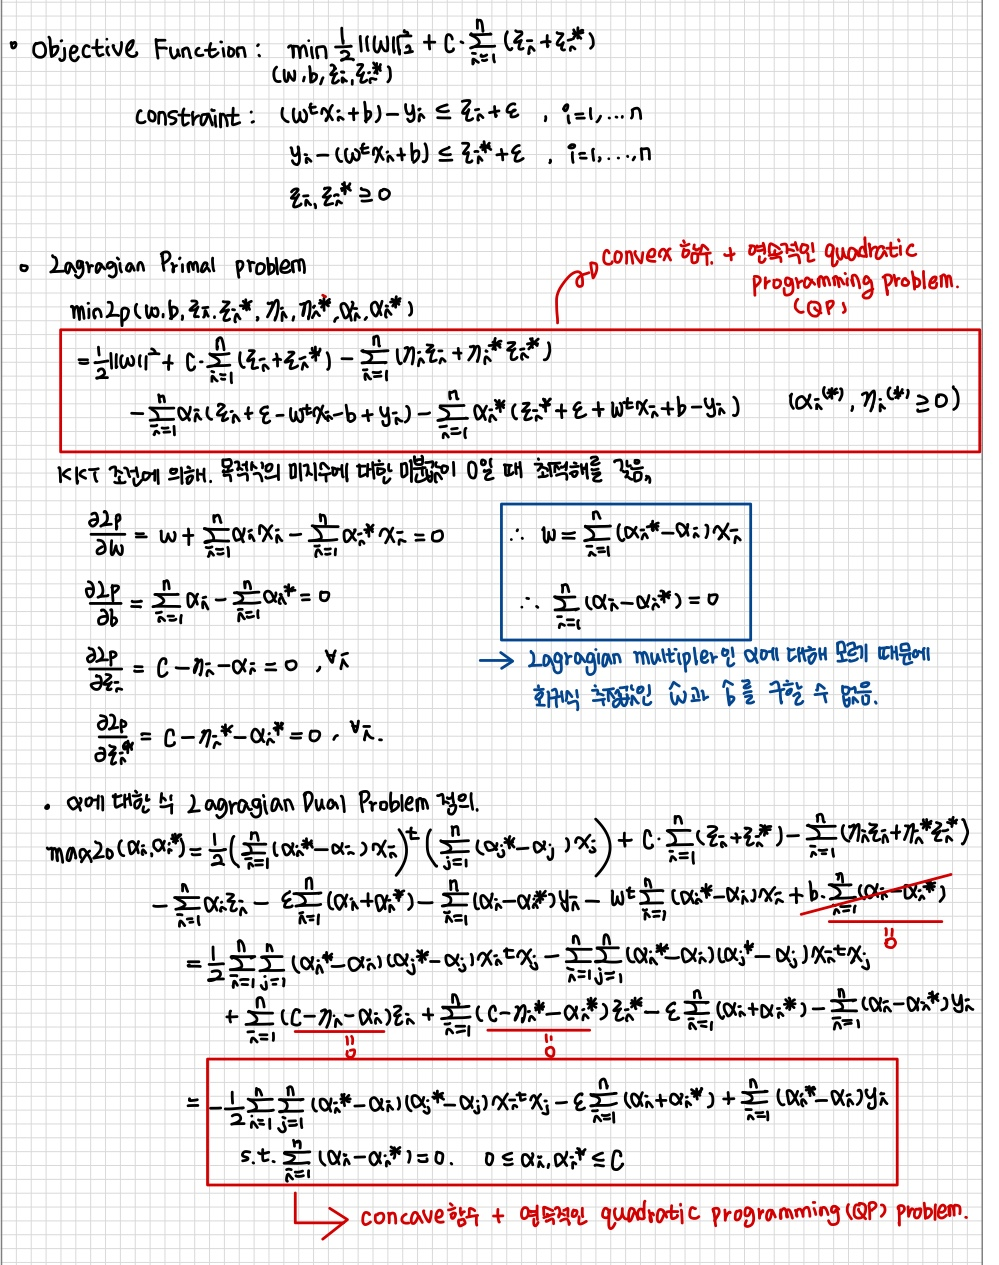 • Objective Function : min 1/2 ||w||₂² + C·Σ_{i=1}^{n} (ξᵢ+ξᵢ*)
(w,b,ξᵢ,ξᵢ*)
constraint : (wᵗxᵢ+b)-yᵢ ≤ ξᵢ+ε , i=1,...n
yᵢ-(wᵗxᵢ+b) ≤ ξᵢ*+ε , i=1,...,n
ξᵢ, ξᵢ* ≥ 0
convex 함수 + 연속적인 quadratic
programming problem.
(QP)
• Lagragian Primal problem
min Lp(w,b,ξᵢ,ξᵢ*,ηᵢ,ηᵢ*,αᵢ,αᵢ*)
= 1/2||w||² + C·Σ_{i=1}^{n}(ξᵢ+ξᵢ*) - Σ_{i=1}^{n}(ηᵢξᵢ+ηᵢ*ξᵢ*)
-Σ_{i=1}^{n}αᵢ(ξᵢ+ε-wᵗxᵢ-b+yᵢ) - Σ_{i=1}^{n}αᵢ*(ξᵢ*+ε+wᵗxᵢ+b-yᵢ) (αᵢ⁽*⁾, ηᵢ⁽*⁾ ≥ 0)
KKT 조건에 의해. 목적식의 미지수에 대한 미분값이 0일 때 최적해를 갖음,
∂Lp/∂w = w + Σ_{i=1}^{n}αᵢxᵢ - Σ_{i=1}^{n}αᵢ*xᵢ = 0
∂Lp/∂b = Σ_{i=1}^{n}αᵢ - Σ_{i=1}^{n}αᵢ* = 0
∂Lp/∂ξᵢ = C-ηᵢ-αᵢ = 0 , ∀ᵢ
∂Lp/∂ξᵢ* = C-ηᵢ*-αᵢ* = 0 , ∀ᵢ.
∴ w = Σ_{i=1}^{n}(αᵢ*-αᵢ)xᵢ
∴ Σ_{i=1}^{n}(αᵢ-αᵢ*) = 0
→ Lagragian multipler인 α에 대해 모르기 때문에
회귀식 추정값인 ŵ과 b̂를 구할 수 없음.
• α에 대한 식 Lagragian Dual Problem 정의.
max L_D(αᵢ,αᵢ*) = 1/2(Σ_{i=1}^{n}(αᵢ*-αᵢ)xᵢ)ᵗ(Σ_{j=1}^{n}(αⱼ*-αⱼ)xⱼ) + C·Σ_{i=1}^{n}(ξᵢ+ξᵢ*) - Σ_{i=1}^{n}(ηᵢξᵢ+ηᵢ*ξᵢ*)
-Σ_{i=1}^{n}αᵢξᵢ - εΣ_{i=1}^{n}(αᵢ+αᵢ*) - Σ_{i=1}^{n}(αᵢ-αᵢ*)yᵢ - wᵗΣ_{i=1}^{n}(αᵢ*-αᵢ)xᵢ + b·Σ_{i=1}^{n}(αᵢ-αᵢ*)
=0
= 1/2 Σ_{i=1}^{n}Σ_{j=1}^{n}(αᵢ*-αᵢ)(αⱼ*-αⱼ)xᵢᵗxⱼ - Σ_{i=1}^{n}Σ_{j=1}^{n}(αᵢ*-αᵢ)(αⱼ*-αⱼ)xᵢᵗxⱼ
+ Σ_{i=1}^{n}(C-ηᵢ-αᵢ)ξᵢ + Σ_{i=1}^{n}(C-ηᵢ*-αᵢ*)ξᵢ* - εΣ_{i=1}^{n}(αᵢ+αᵢ*) - Σ_{i=1}^{n}(αᵢ-αᵢ*)yᵢ
=0 =0
= -1/2 Σ_{i=1}^{n}Σ_{j=1}^{n}(αᵢ*-αᵢ)(αⱼ*-αⱼ)xᵢᵗxⱼ - εΣ_{i=1}^{n}(αᵢ+αᵢ*) + Σ_{i=1}^{n}(αᵢ*-αᵢ)yᵢ
s.t. Σ_{i=1}^{n}(αᵢ-αᵢ*)=0. 0 ≤ αᵢ,αᵢ* ≤ C
→ concave 함수 + 연속적인 quadratic programming(QP) problem.